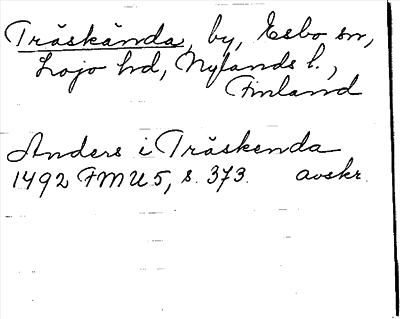 Träskända, by, Esbo sn,
Lojo hd, Nylands l.,
Finland
Anders i Träskenda
1492 FMU 5, s. 373. avskr.